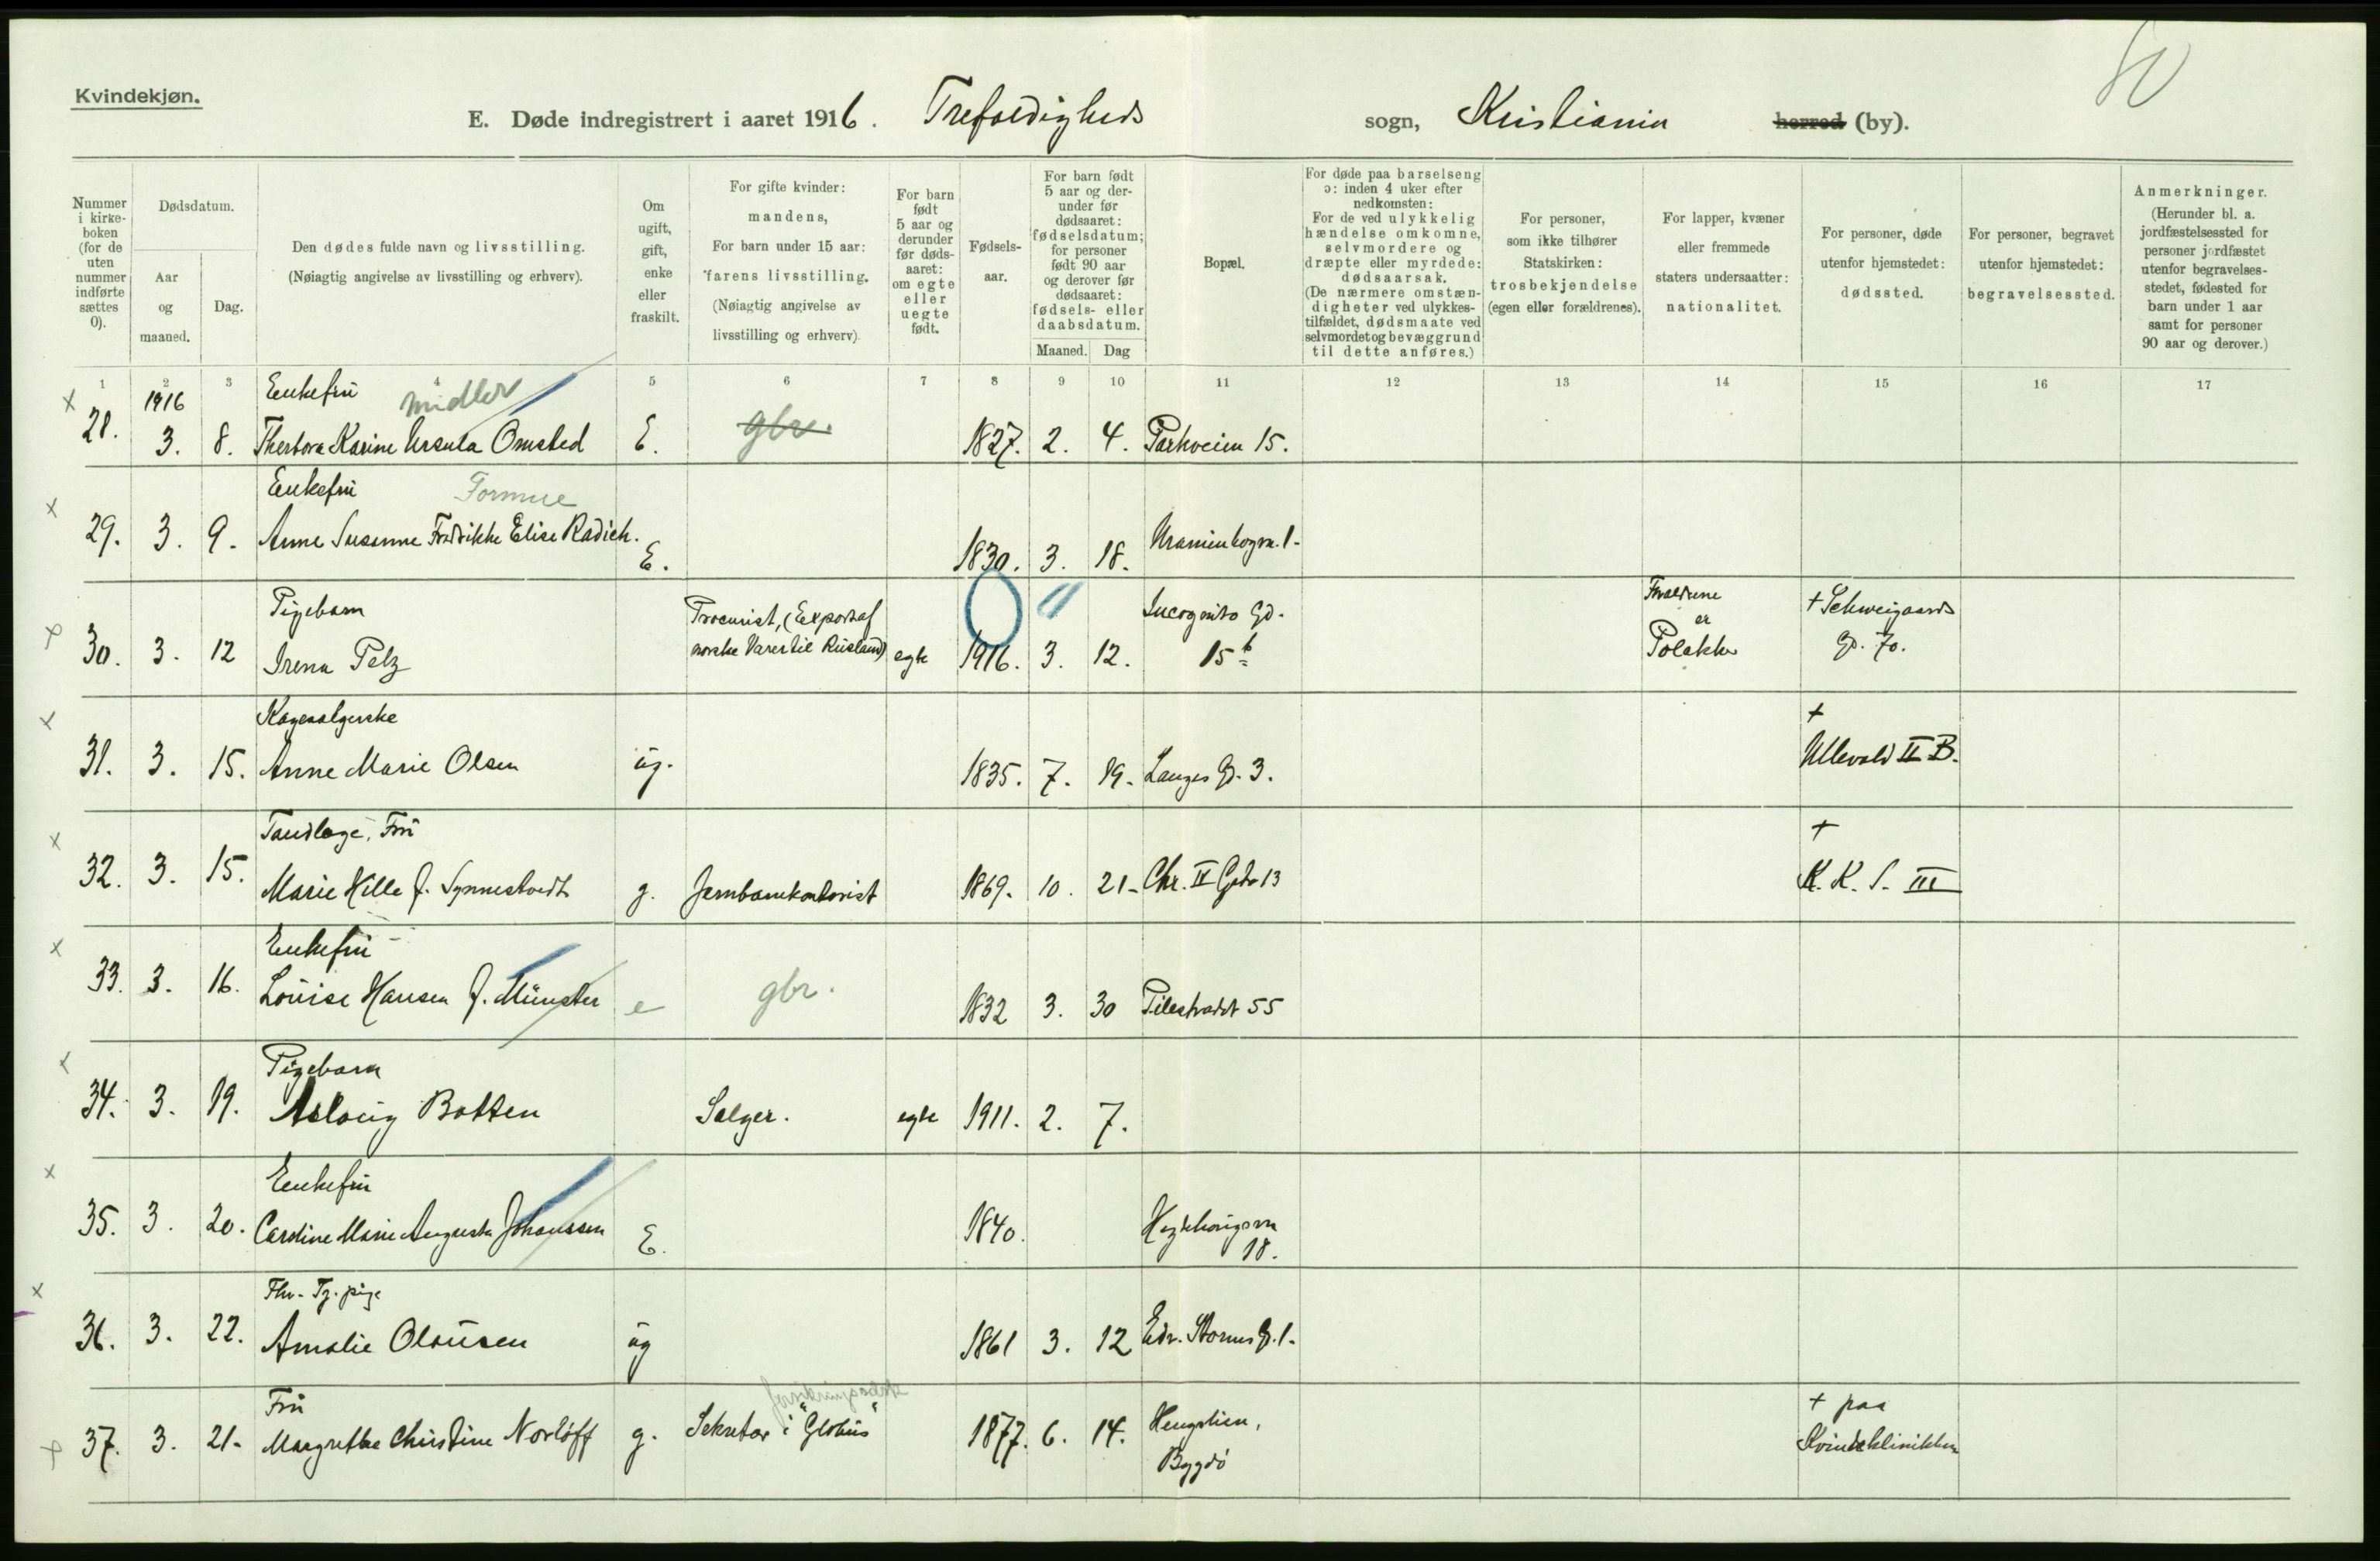 Kvindekjøn.
80
E. Døde indregistrert i aaret 1916. Trefoldigheds sogn, Kristiania herred (by).
Nummer i kirkeboken (for de uten nummer indførte sættes 0).
Dødsdatum.
Aar og maaned.
Dag.
Den dødes fulde navn og livsstilling.
(Nøiagtig angivelse av livsstilling og erhverv).
Om ugift, gift, enke eller fraskilt.
For gifte kvinder: mandens,
For barn under 15 aar: farens livsstilling.
(Nøiagtig angivelse av livsstilling og erhverv)
For barn født 5 aar og derunder før dødsaaret: om egte eller uegte født.
Fødselsaar.
For barn født 5 aar og derunder før dødsaaret: fødselsdatum; for personer født 90 aar og derover før dødsaaret: fødsels- eller daabsdatum.
Maaned. Dag
Bopæl.
For døde paa barselseng ɔ: inden 4 uker efter nedkomsten:
For de ved ulykkelig hændelse omkomne, selvmordere og dræpte eller myrdede: dødsaarsak.
(De nærmere omstændigheter ved ulykkestilfældet, dødsmaate ved selvmordet og bevæggrund til dette anføres.)
For personer, som ikke tilhører Statskirken: trosbekjendelse (egen eller forældrenes).
For lapper, kvæner eller fremmede staters undersaatter: nationalitet.
For personer, døde utenfor hjemstedet: dødssted.
For personer, begravet utenfor hjemstedet: begravelsessted.
Anmerkninger.
(Herunder bl. a. jordfæstelsessted for personer jordfæstet utenfor begravelsesstedet, fødested for barn under 1 aar samt for personer 90 aar og derover.)
1 2 3 4 5 6 7 8 9 10 11 12 13 14 15 16 17
1916 Enkefru midler
28. 3. 8. Karine Ursula Omsted E. gbr. 1827. 2. 4. Parkveien 15.
Enkefru Formue
29. 3. 9. Anne Susanne Fredrikke Elise Radich. E. 1830. 3. 18. Uranienborgv. 1.
Pigebarn Procurist, (Export af Incognito Gd. Forældrene er + Schweigaards
30. 3. 12 Irena Pelz norske Varer til Rusland) egte 1916. 3. 12. 15 b Polakker Gd. 70.
Kagesælgerske +
31. 3. 15. Anne Marie Olsen ug. 1835. 7. 19. Langes Gd. 3. Ullevold II B.
Tandlæge, Fru +
32. 3. 15. Marie Hille f. Synnestvedt g. Jernbanekontorist 1869. 10. 21. Chr. IV Gade 13 K. K. S. III
Enkefru
33. 3. 16. Louise Hansen f. Münster e gbr. 1832 3. 30 Pilestrædet 55
Pigebarn
34. 3. 19. Aslaug Botten Sælger. egte 1911. 2. 7.
Enkefru
35. 3. 20. Caroline Marie Augusta Johanssen E. 1840. Hegdehaugsvn 18.
Fhv. Tj. pige
36. 3. 22. Amalie Olausen ug 1861 3. 12 Edv. Storms Gd. 1.
Fru + paa
37. 3. 21. Margrethe Christine Norløff g. Sekretær i "Globus" 1877. 6. 14. Hengslien, Bygdø Kvindeklinikken